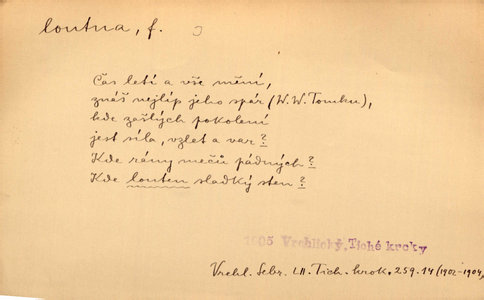 loutna, f.
Čas letí a vše mění,
znáš nejlíp jeho spár (W. W. Tomku),
kde zašlých pokolení
jest síla, vzlet a var?
Kde rány mečů pádných?
Kde louten sladký sten?
1905 Vrchlický, Tiché kroky
Vrchl. Sebr. LII. Tich. krok. 259.14 (1902-1904)